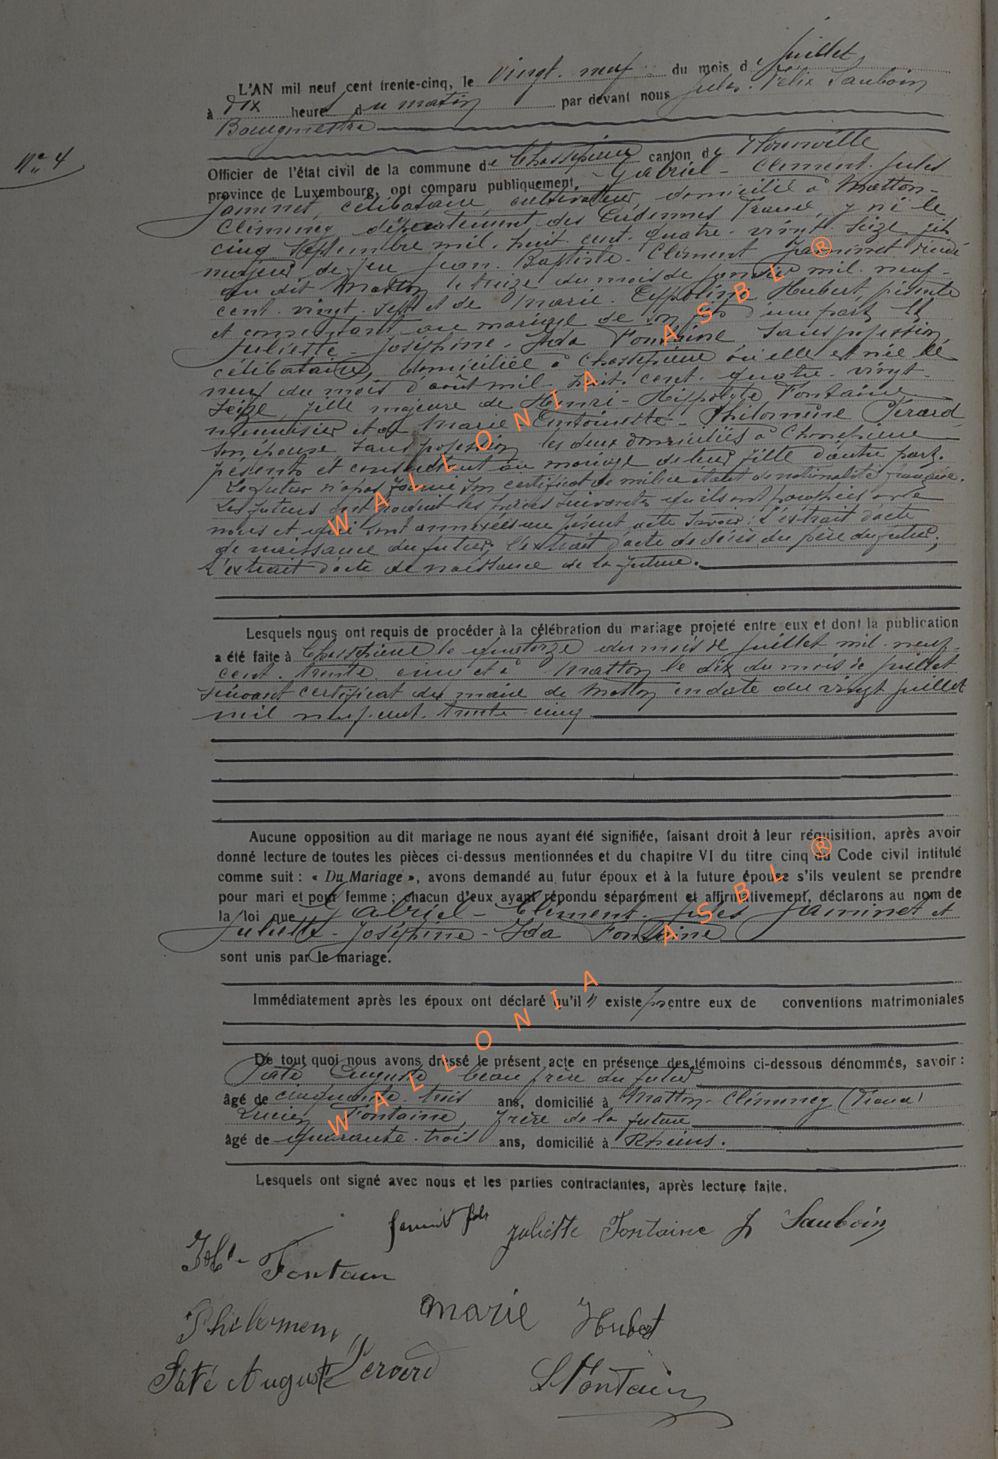 N° 4
L'AN mil neuf cent trente-cinq, le vingt-neuf du mois de juillet,
à dix heures du matin par devant nous Jules-Félix Sauboin
Bourgmestre
Officier de l'état civil de la commune de Chassepierre canton de Florenville
province de Luxembourg, ont comparu publiquement, Gabriel-Clément-Jules
Jaminet, célibataire cultivateur, domicilié à Matton-
Clémency département des Ardennes France, y né le
cinq septembre mil-huit cent-quatre-vingt-seize, fils
majeur de feu Jean-Baptiste-Clément Jaminet décédé
au dit Matton le treize du mois de janvier mil-neuf-
cent-vingt-sept et de Marie-Hubert, présente
et consentant au mariage de son fils d'une part, Et
Juliette-Joséphine-Ida Fontaine sans profession
célibataire, domiciliée à Chassepierre où elle est née le
neuf du mois d'août mil-huit-cent-quatre-vingt-
seize, fille majeure de Henri-Hippolyte Fontaine
menuisier et de Marie Antoinette-Philomène Pérard
son épouse sans profession, les deux domiciliés à Chassepierre
présents et consentant au mariage de leur fille d'autre part.
Le futur n'a pas fourni son certificat de milice étant de nationalité française.
Les futurs ont produit les pièces suivantes qu'ils ont paraphées avec
nous et qui sont annexées au présent acte savoir: L'extrait d'acte
de naissance du futur, l'extrait d'acte de décès du père du futur,
L'extrait d'acte de naissance de la future.
Lesquels nous ont requis de procéder à la célébration du mariage projeté entre eux et dont la publication
a été faite à Chassepierre le quatorze du mois de juillet mil-neuf-
cent-trente cinq et à Matton le dix du mois de juillet
suivant certificat du maire de Matton en date du vingt juillet
mil neuf-cent-trente-cinq
Aucune opposition au dit mariage ne nous ayant été signifiée, faisant droit à leur réquisition, après avoir
donné lecture de toutes les pièces ci-dessus mentionnées et du chapitre VI du titre cinq du Code civil intitulé
comme suit : « Du Mariage », avons demandé au futur époux et à la future épouse s'ils veulent se prendre
pour mari et pour femme ; chacun d'eux ayant répondu séparément et affirmativement, déclarons au nom de
la loi que Gabriel-Clément-Jules Jaminet et
Juliette-Joséphine-Ida Fontaine
sont unis par le mariage.
Immédiatement après les époux ont déclaré qu'il n'existe pas entre eux de conventions matrimoniales
De tout quoi nous avons dressé le présent acte en présence des témoins ci-dessous dénommés, savoir :
Paté Auguste beau frère du futur
âgé de cinquante-trois ans, domicilié à Matton-Clémency (France)
Lucien Fontaine, frère de la future
âgé de quarante-trois ans, domicilié à Rheims.
Lesquels ont signé avec nous et les parties contractantes, après lecture faite.
Jaminet fils Juliette Fontaine J Sauboin
Hte Fontaine
Philomène Pérard Marie Hubert
Paté Auguste L Fontaine
WALLONIA ASBL ®
WALLONIA ASBL ®